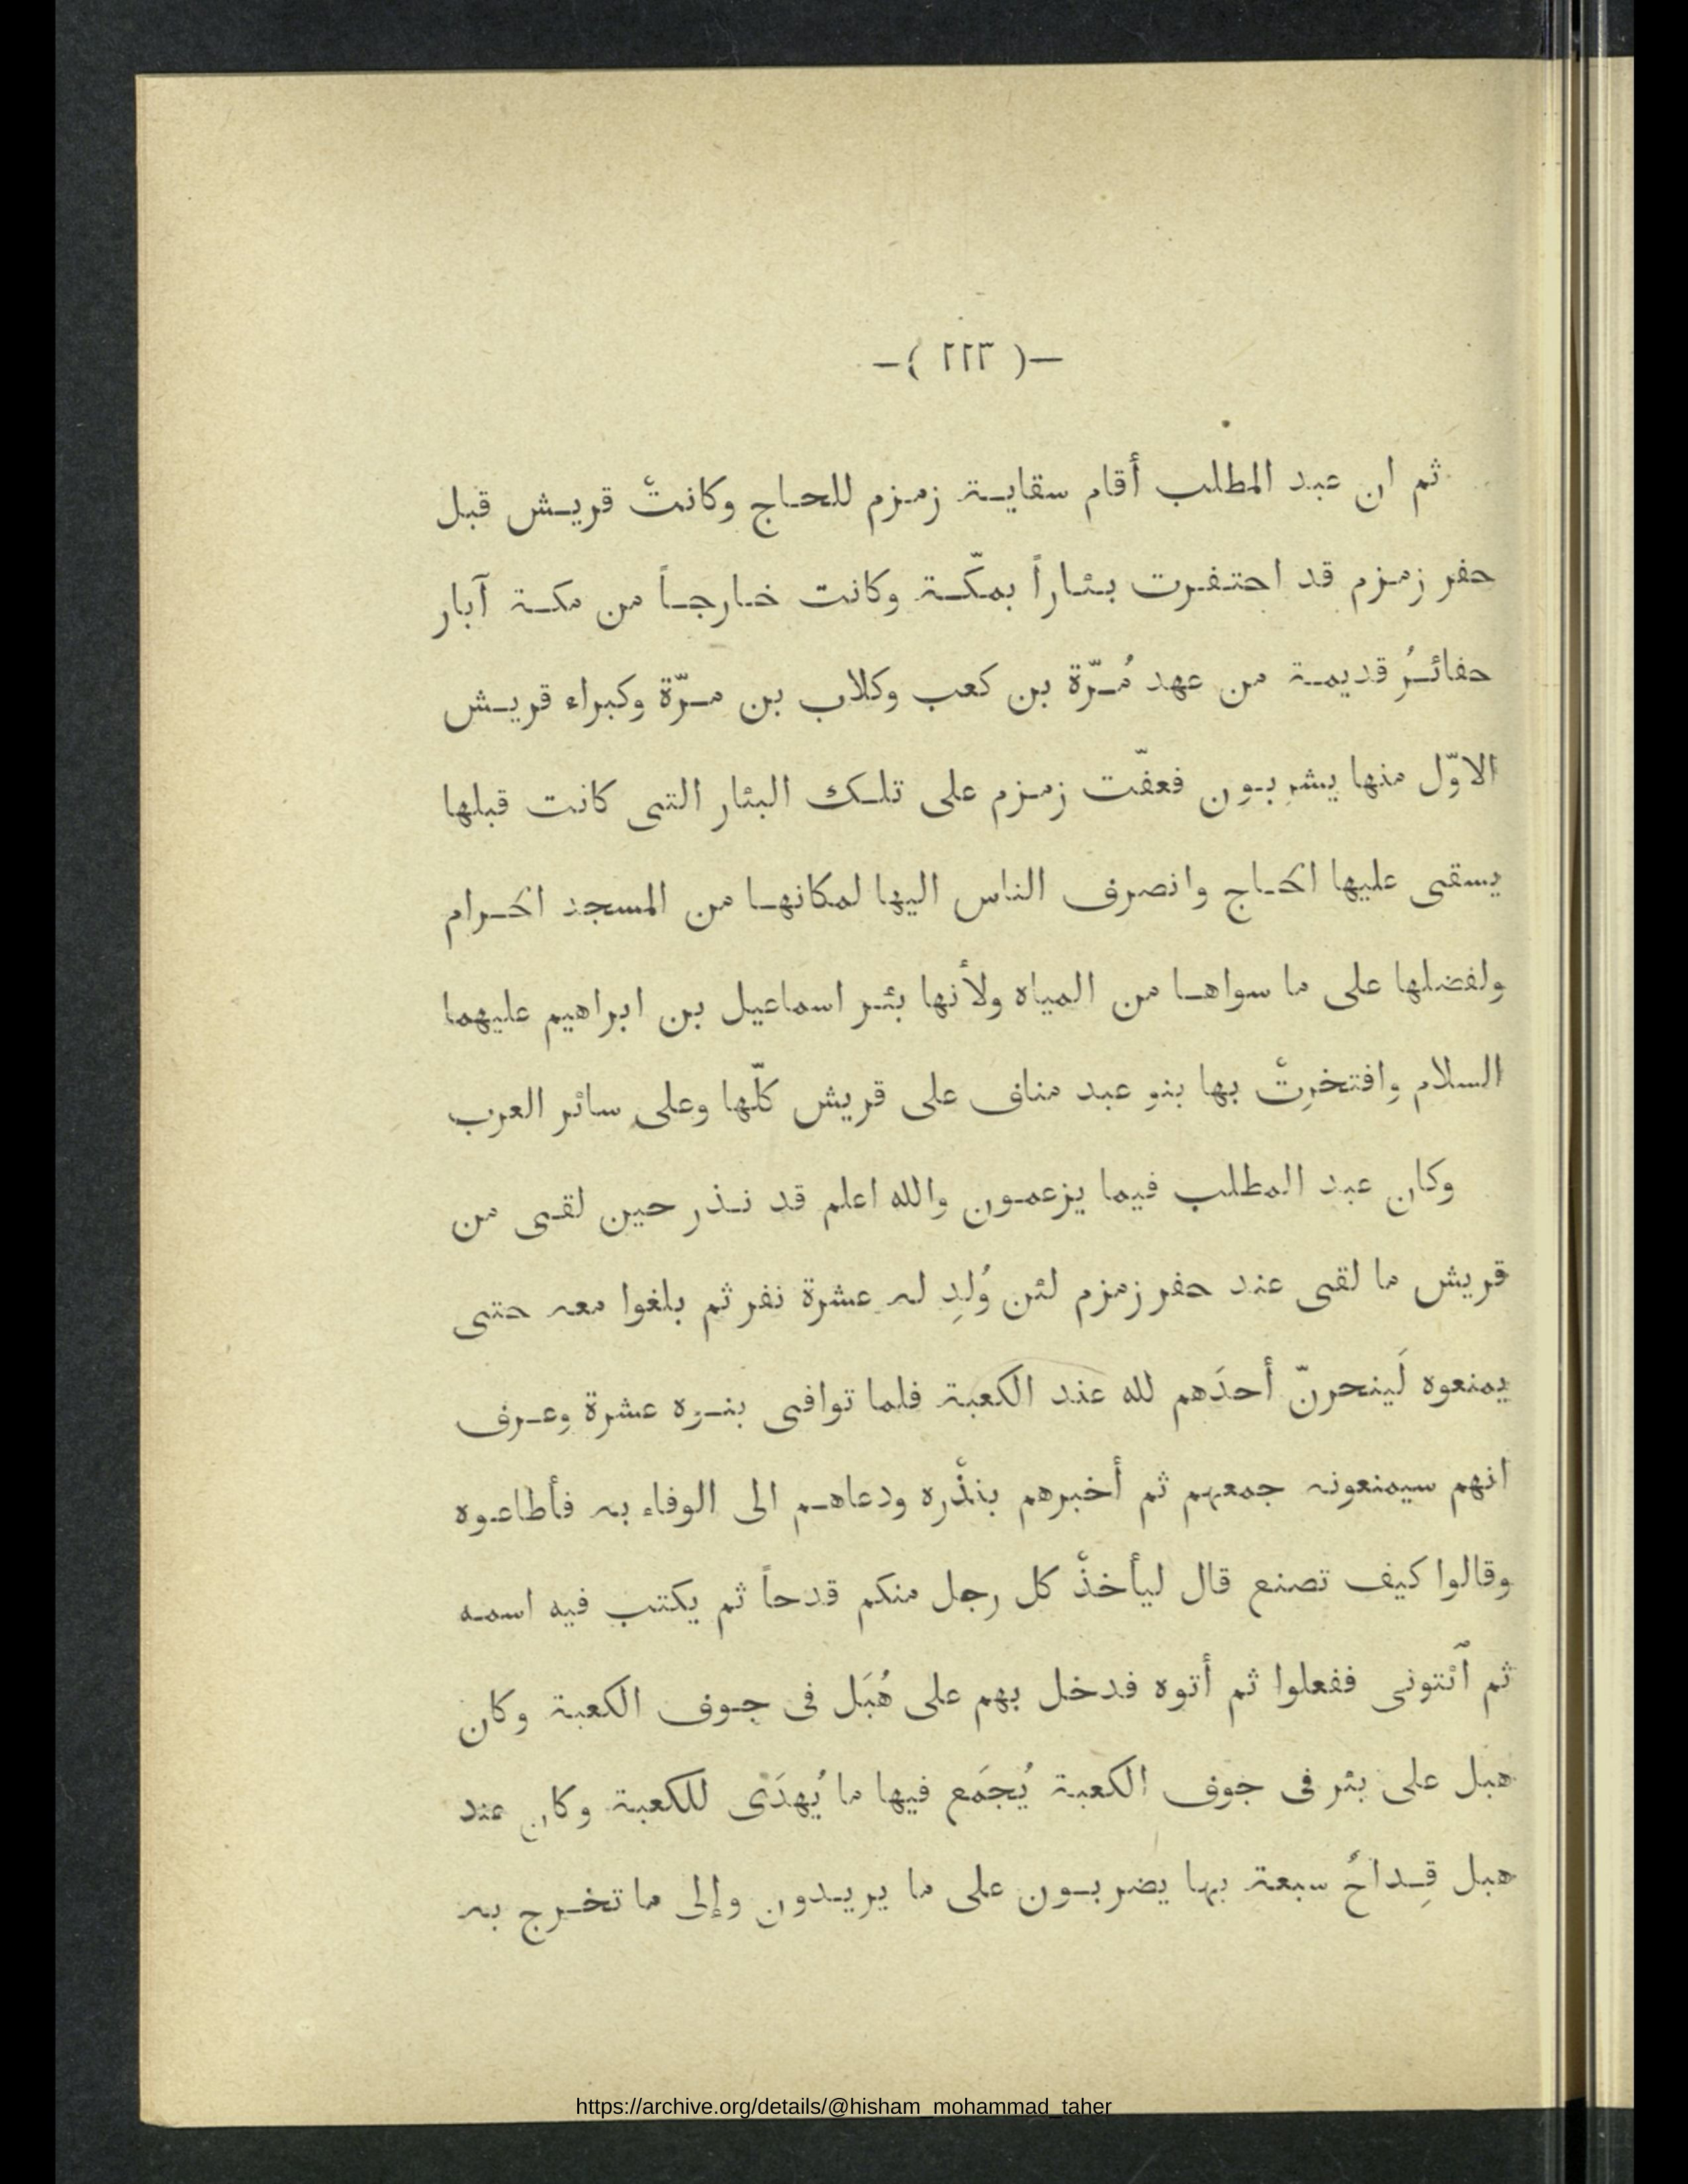 —( ٢٢٣ )—
ثم ان عبد المطلب أقام سقاية زمزم للحاج وكانتْ قريش قبل
حفر زمزم قد احتفرت بئاراً بمكّة وكانت خارجاً من مكة آبار
حفائرُ قديمة من عهد مُرّة بن كعب وكلاب بن مرّة وكبراء قريش
الاوّل منها يشربون فعفّت زمزم على تلك البئار التى كانت قبلها
يسقى عليها الحاج وانصرف الناس اليها لمكانها من المسجد الحرام
ولفضلها على ما سواها من المياه ولأنها بئر اسماعيل بن ابراهيم عليهما
السلام وافتخرتْ بها بنو عبد مناف على قريش كلّها وعلى سائر العرب
وكان عبد المطلب فيما يزعمون والله اعلم قد نذر حين لقى من
قريش ما لقى عند حفر زمزم لئن وُلدِ له عشرة نفر ثم بلغوا معه حتى
يمنعوه لَينحرنّ أحدَهم لله عند الكعبة فلما توافى بنوه عشرة وعرف
انهم سيمنعونه جمعهم ثم أخبرهم بنذْره ودعاهم الى الوفاء به فأطاعوه
وقالوا كيف تصنع قال ليأخذْ كل رجل منكم قدحاً ثم يكتب فيه اسمه
ثم ٱئتونى ففعلوا ثم أتوه فدخل بهم على هُبَل فى جوف الكعبة وكان
هبل على بئر فى جوف الكعبة يُجمَع فيها ما يُهدَى للكعبة وكان عند
هبل قِداحُ سبعة بها يضربون على ما يريدون وإلى ما تخرج به
https://archive.org/details/@hisham_mohammad_taher